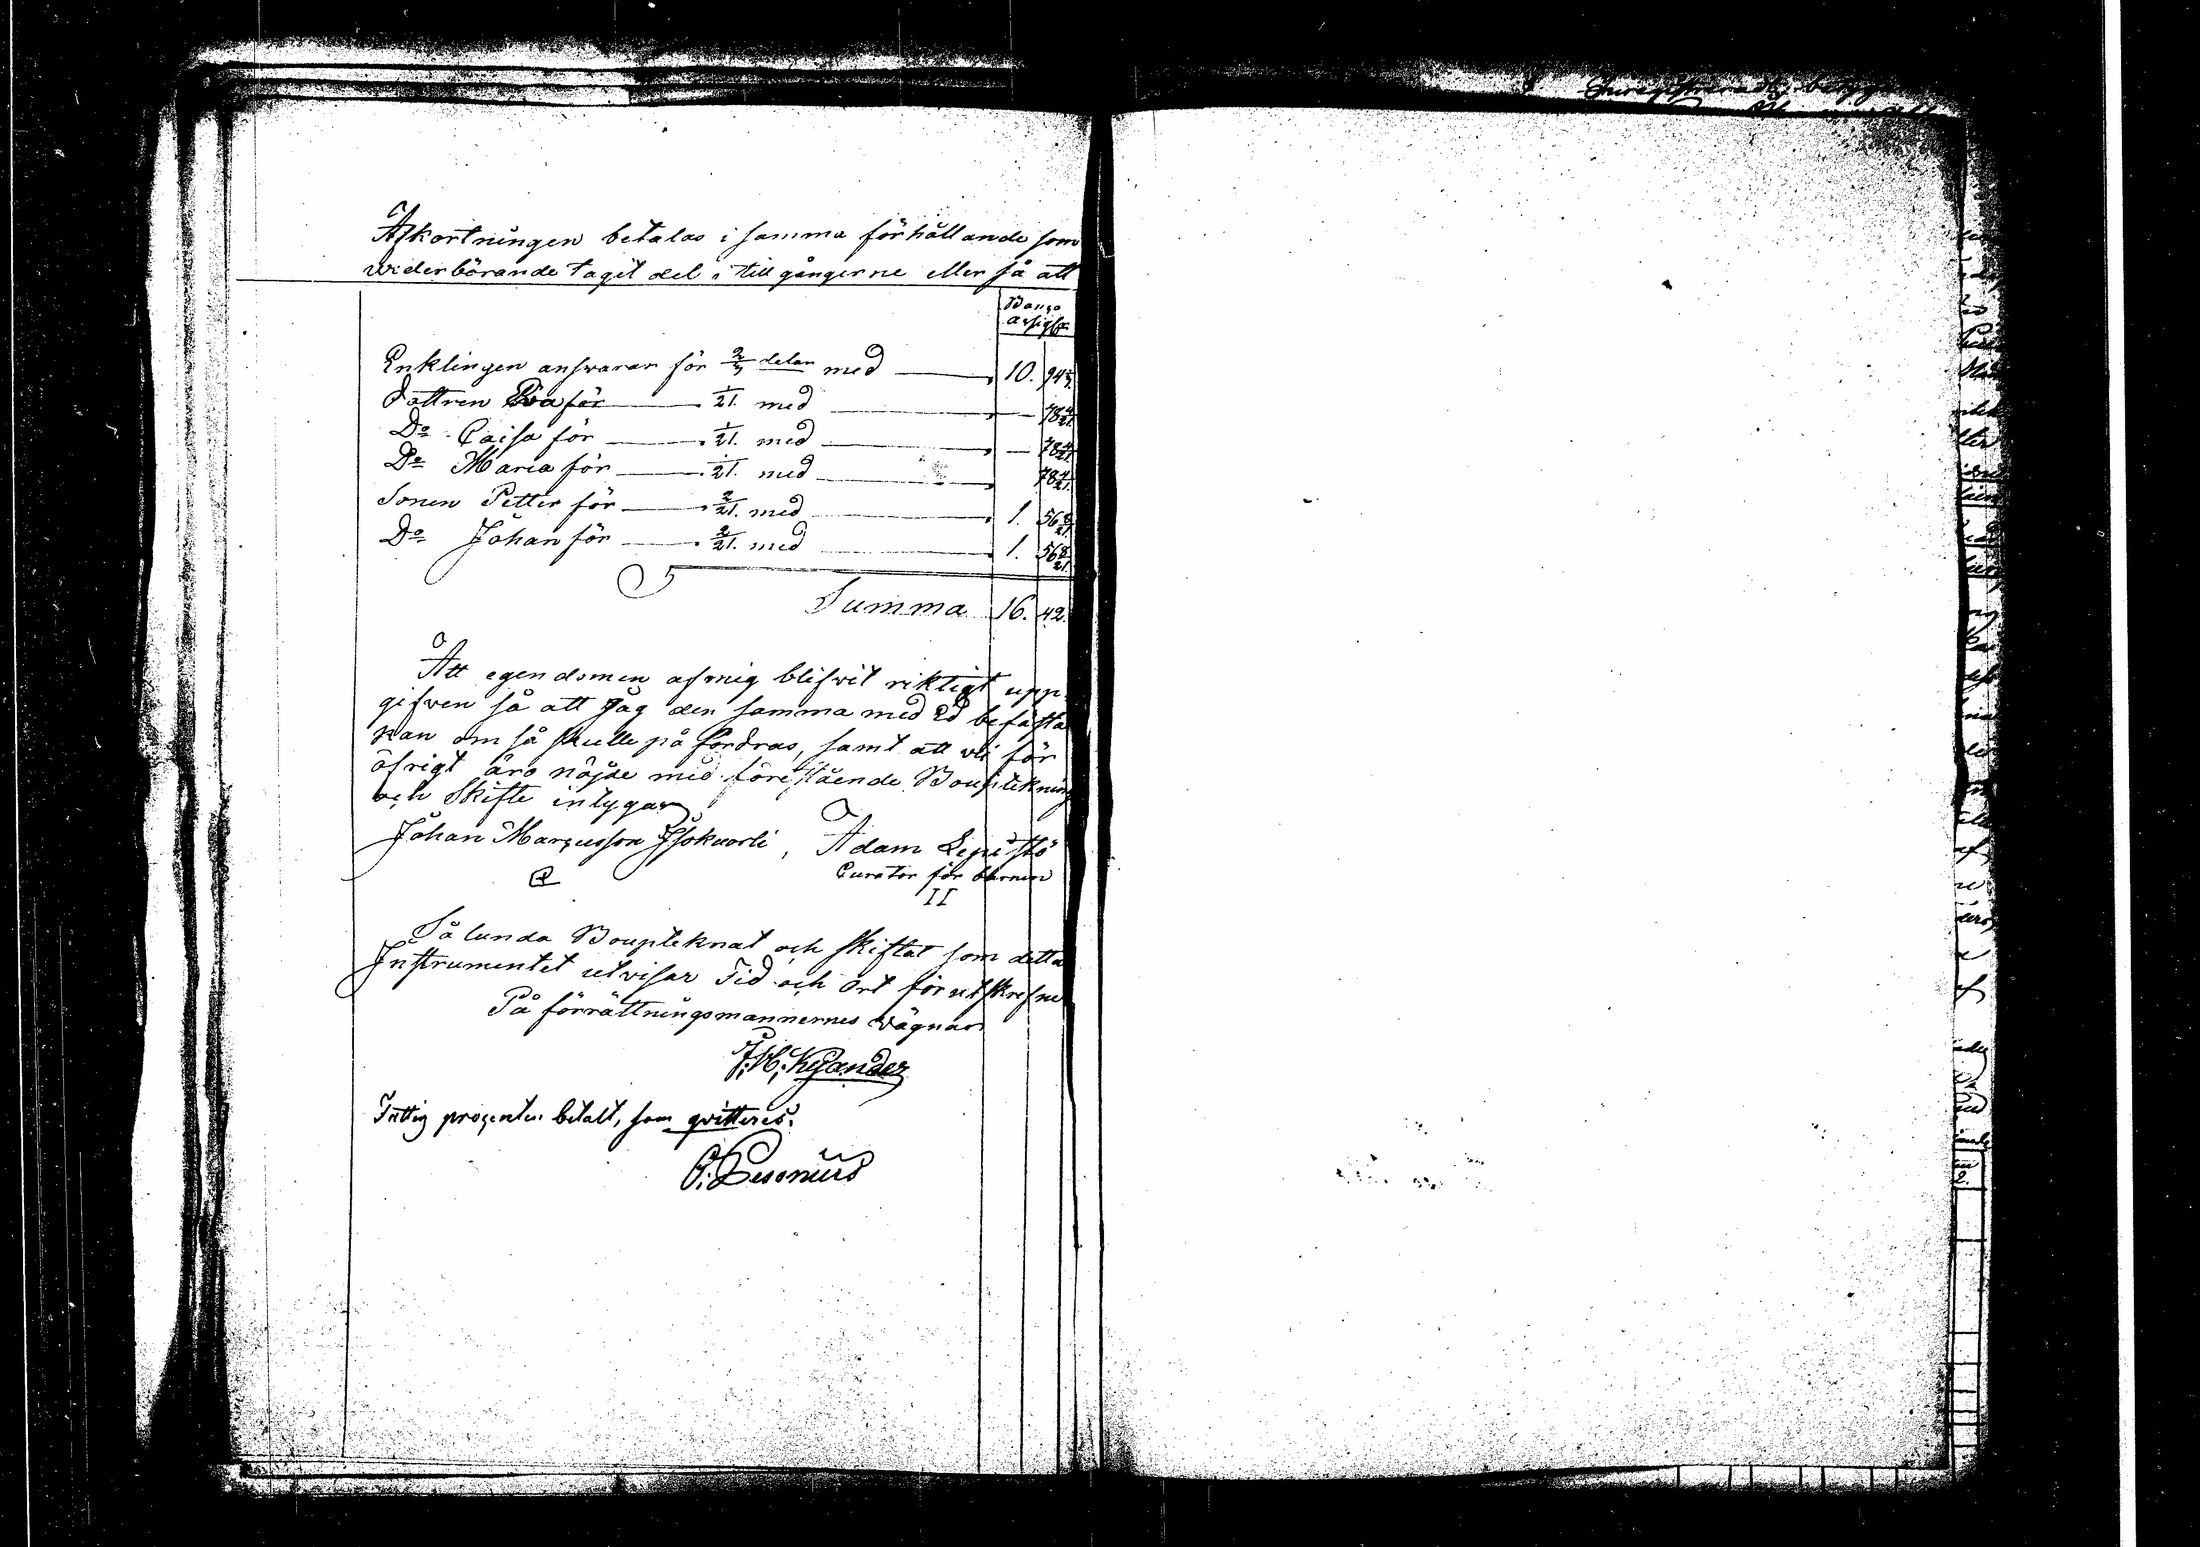 Afkortningen betalas i samma förhållande som
wederbörande tagit del i tillgångerne eller så att
Banco
Assignr
Enklingen answarar för 2/3 delar med 10. 94 2/3
Dottren Eva för 1/21. med — 78 4/21
Do Caisa för 1/21. med — 78 4/21
Do Maria för 1/21. med 78 4/21
Sonen Petter för 2/21. med 1. 56 8/21
Do Johan för 2/21. med 1. 56 8/21
Summa 16. 42.
Att egendomen af mig blifvit riktigt upp-
gifven så att Jag den samma med Ed befästa
kan om så skulle på fordras, samt att vi för
öfrigt äro nöjde med förestående Bouptekning
och Skifte intygar
Johan Marcusson Isokuorti, Adam Lepistö
Curator för barnen
II
Sålunda Boupteknat och skiftat som detta
Instrumentet utvisar Tid och Ort förutskrefne
På förrättningsmannernes vägnar
J. H. Kejander
Fattig procenten betalt, som qvitteras.